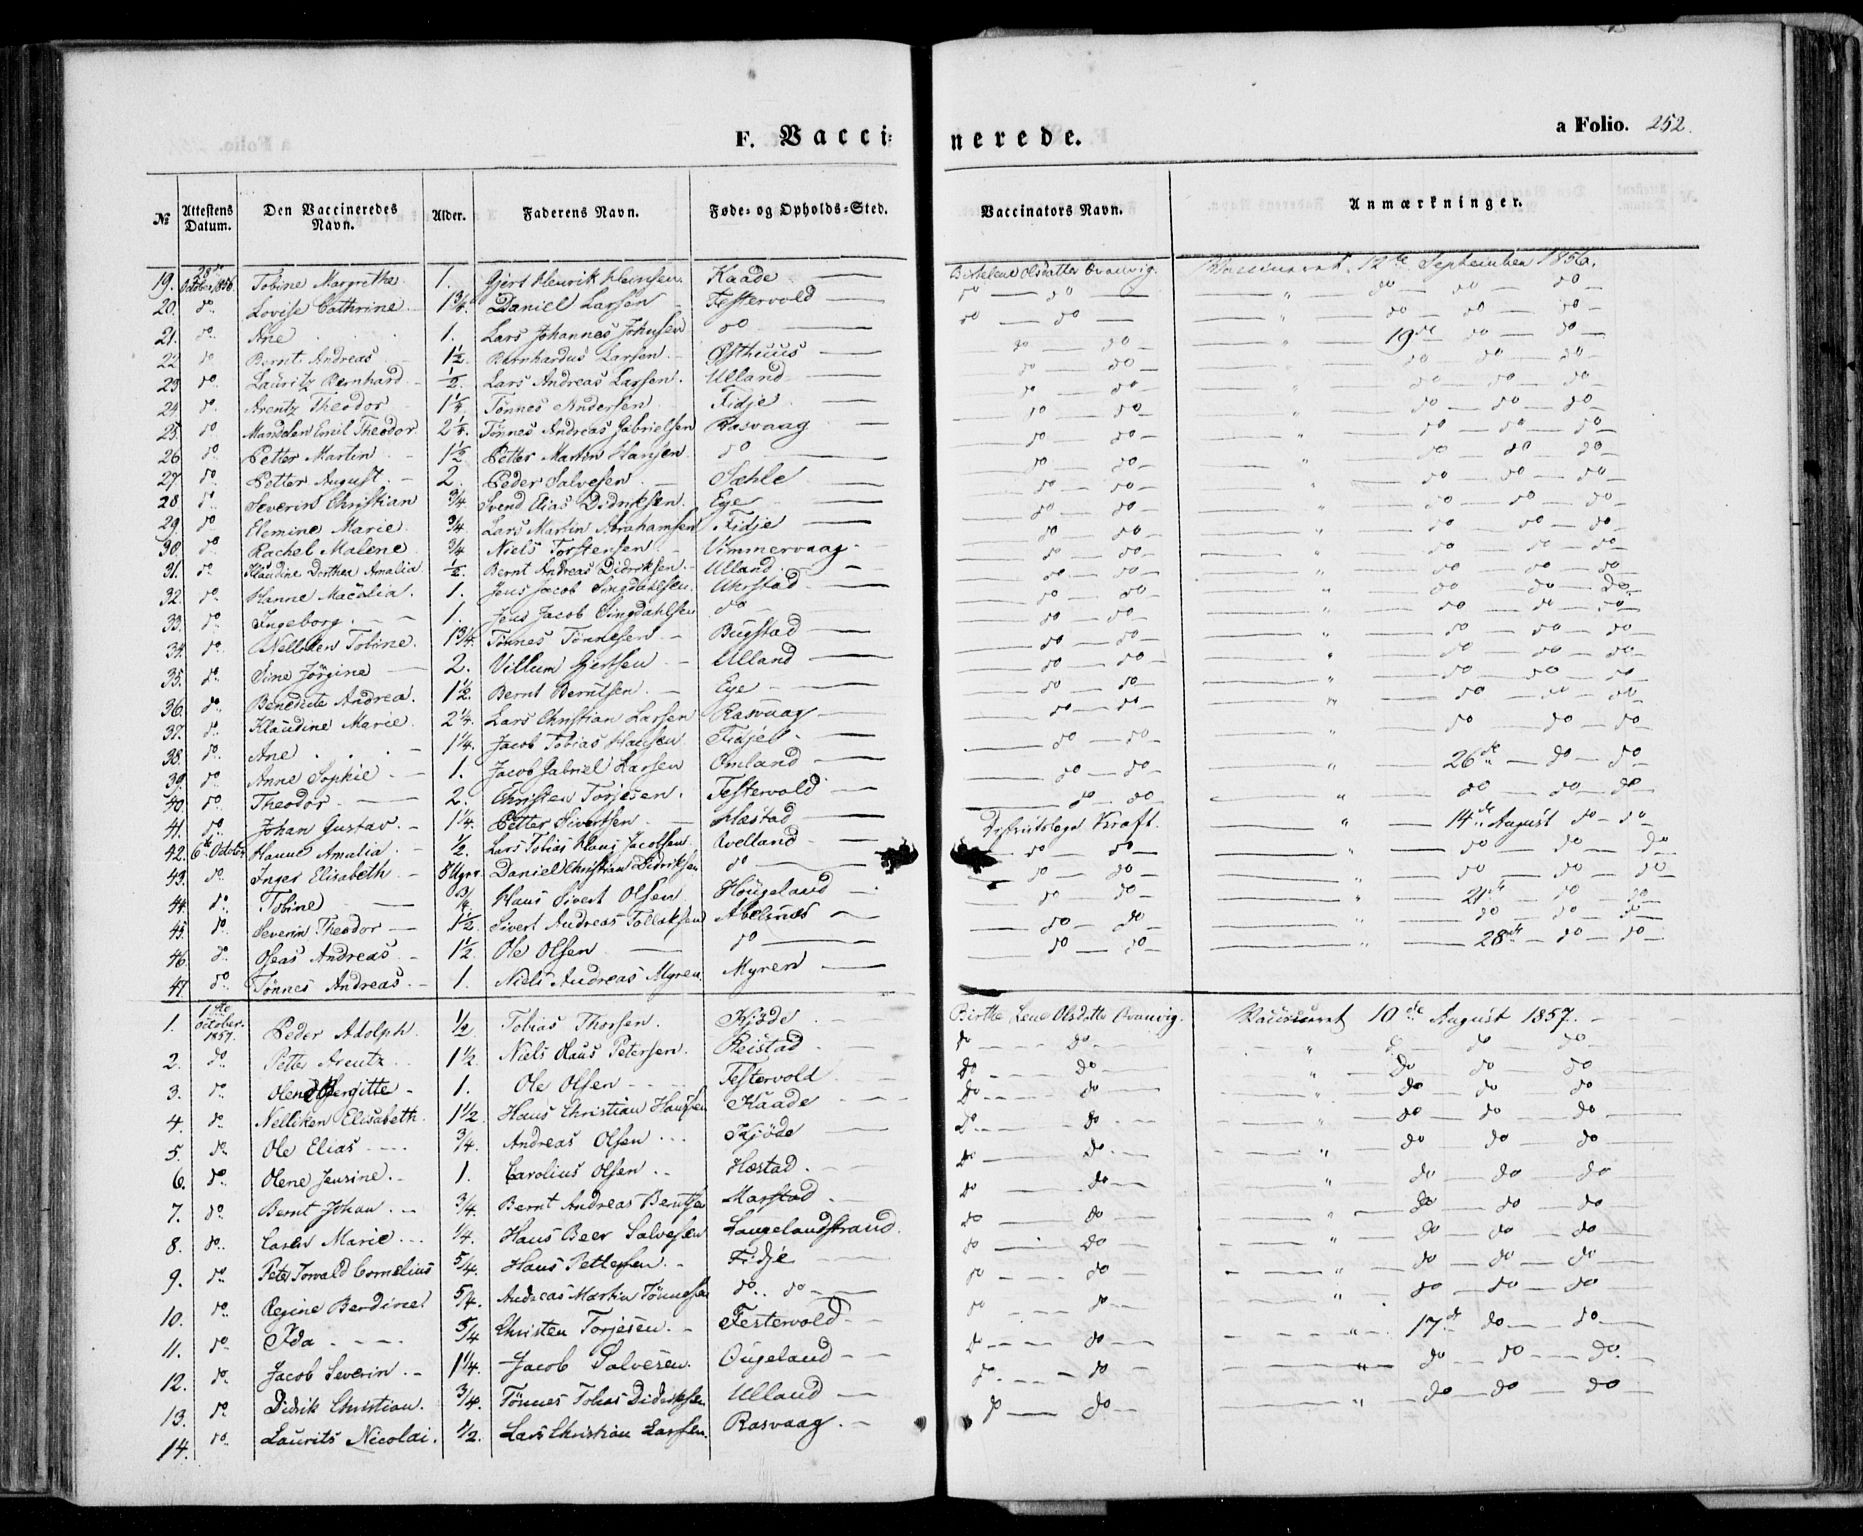 F. Vacci=nerede.
a Folio. 252.
№ Attestens Datum. Den Vaccineredes Navn. Alder. Faderens Navn. Føde= og Opholds=Sted. Vaccinators Navn. Anmærkninger.
19. October 1856 Tobine Margrethe 1. Gjert Henrik Heinsen Kaade Olsdatter Qvanvig. Vaccineret 12te September 1856.
20. do Lovise Cathrine 1 3/4. Daniel Larsen Festervold — do — do — " do — do — do
21. do Ane 1. Lars Johannes Johnsen do — do — do — " do — do — do
22 do Bernt Andreas 1 1/2. Bernhardus Larsen Østhuus — do — do — " 19de do — do —
23 do Lauritz Bernhard 1/2. Lars Andreas Larsen. Ulland — do — do — " do do do —
24 do Arentz Theodor 1 1/4. Tönnes Andersen Fidje — do — do — " do — do — do —
25. do Mandolen Emil Theodor 2 1/4. Tönnes Andreas Gabrielsen Rasvaag — do — do — " do — do — do —
26 do Petter Martin 1 1/2 Petter Martin Hansen do — do — do — " do — do — do —
27 do Petter August 2. Peder Salvesen Sæhle — do — do — " do — do — do —
28 do Severin Christian 3/4. Svend Elias Didriksen. Eye — do — do — " do — do — do —
29. do Elemine Marie 3/4. Lars Martin Abrahamsen Fidje — do — do — " do — do — do —
30. do Rachel Malene 3/4 Niels Torstensen Vimmervaag — do — do — " do — do — do —
31. do Klaudine Dorthea Amalia 1/2. Bernt Andreas Didriksen Ulland — do — do — " do — do — do —
32. do Hanne Macalia. 1. Jens Jacob Singdahlsen Uhrstad — do — do — " do do do
33. do Ingeborg 1. Jens Jacob Singdahlsen do — do — do — " do — do — do —
34. do Nelliken Tobine. 1 3/4. Tönnes Tönnesen Bugstad — do — do — " do — do — do —
35. do Sine Jörgine 2. Villum Gjertsen Ulland — do — do — " do — do — do —
36. do Benedicte Andrea. 1 1/2. Bernt Berntsen Eye — do — do — " do — do — do —
37. do Klaudine Marie 2 1/4. Lars Christian Larsen Rasvaag — do — do — " do — do — do
38. do Ane 1 1/4. Jacob Tobias Hansen Fidje — do — do — " do — do — do
39. do Anne Sophie 1. Jacob Gabriel Larsen Omland — do — do — " 26de — do — do
40. do Theodor 2. Christen Torjesen. Festervold — do — do — " do — do — do
41. do Johan Gustav. 1 1/4. Petter Sivertsen Hæstad Districtslæge Kraft. " 14de August do — do
42. 6te October Hanne Amalia 1/2. Lars Tobias Klaus Jacobsen Qvelland — do — do — " do — do — do
43. do Inger Elisabeth 8 Ugr. Daniel Christian Didriksen do — do — do — " do do do
44. do Tobine 3/4 Hans Sivert Olsen Hougeland — do do " 21de do — do
45. do Severin Theodor 1 1/2 Sivert Andreas Tollaksen Abelnæs — do — do " do — do — do
46. do Oseas Andreas 1 1/2. Ole Olsen do — do — do — " 28de — do — do —
47. do Tönnes Andreas. 1. Niels Andreas Myren Myren
1. 1ste October 1857. Peder Adolph 1/2 Tobias Thorsen. Kjöde Birthe Lene Olsdatte Qvanvig. Vaccineret 10de August 1857.
2. do Petter Arentz 1 1/2 Niels Claus Petersen. Reistad do — do — " do do
3. do Olene Bergitte 1. Ole Olsen Festervold do — do — " do do do
4. do Nelliken Elisabeth. 1 1/2. Hans Christian Hansen Kaade do — do — do do do
5. do Ole Elias 3/4. Andreas Olsen Kjöde do — do — do do do
6. do Olene Jensine. 1. Carolius Olsen Hæstad. do — do. " do do do
7. do Bernt Johan 3/4. Bernt Andreas Berntsen Marstad do — do " do do do
8. do Caren Marie 1/4. Hans Beer Salvesen Langelandstrand. do — do " do — do — do
9. do Peter Torvald Cornelius 5/4. Hans Pettersen Fidje do — do " do — do — do
10. do Regine Berdine 5/4. Andreas Martin Tönnesen do. do. do — do " do — do — do
11. do Ida 5/4 Christen Torjesen. Festervold do — do " do — do — do
12. do Jacob Severin 1 1/4. Jacob Salvesen. Ougeland do — do " 17de do — do —
13. do Didrik Christian. 3/4. Tönnes Tobias Didriksen Ulland do — do " do — do — do.
14. do Laurits Nicolai. 1/2. Lars Christian Larsen. Rasvaag. do — do — " do — do — do